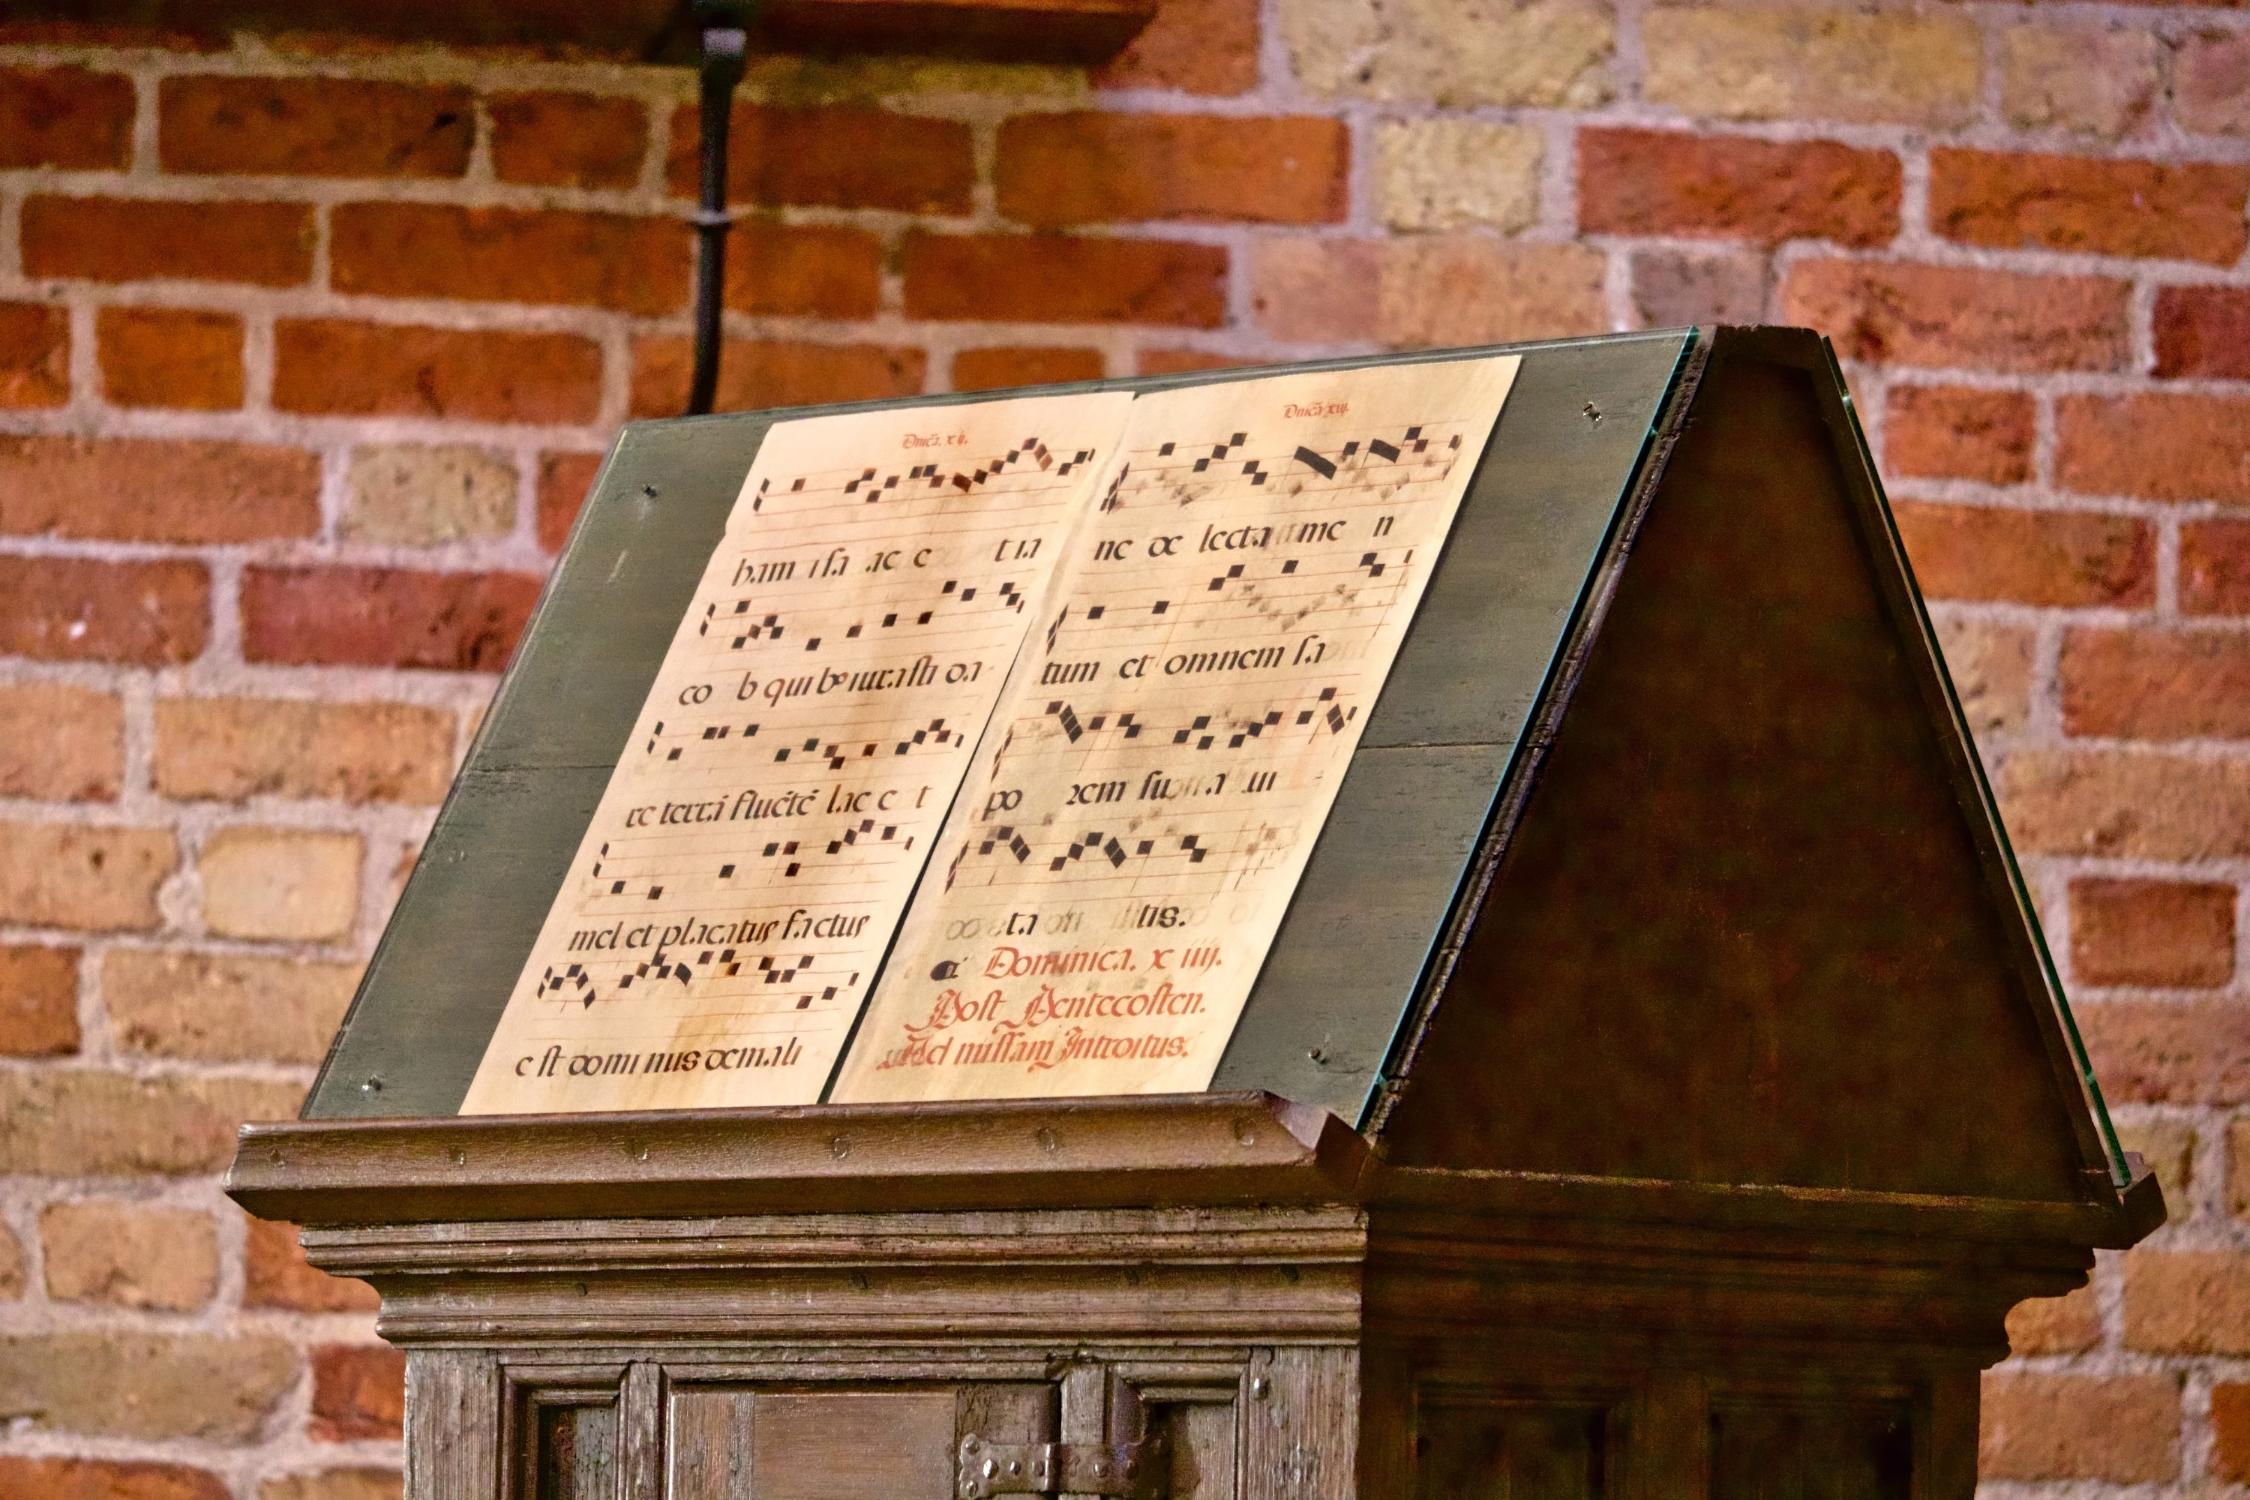 Dnica. xij.
ham isa ac e t ia
co b qui bꝰ iurasti da
re terrā fluētē lac e t
mel et placatus factus
e st domi nus de mali
Dnica xiij.
ne de lecta me n
tum et omnem sa
po rem sua ui
ta tis.
Dominica. x iiij.
Post Pentecosten.
Ad missam Introitus.